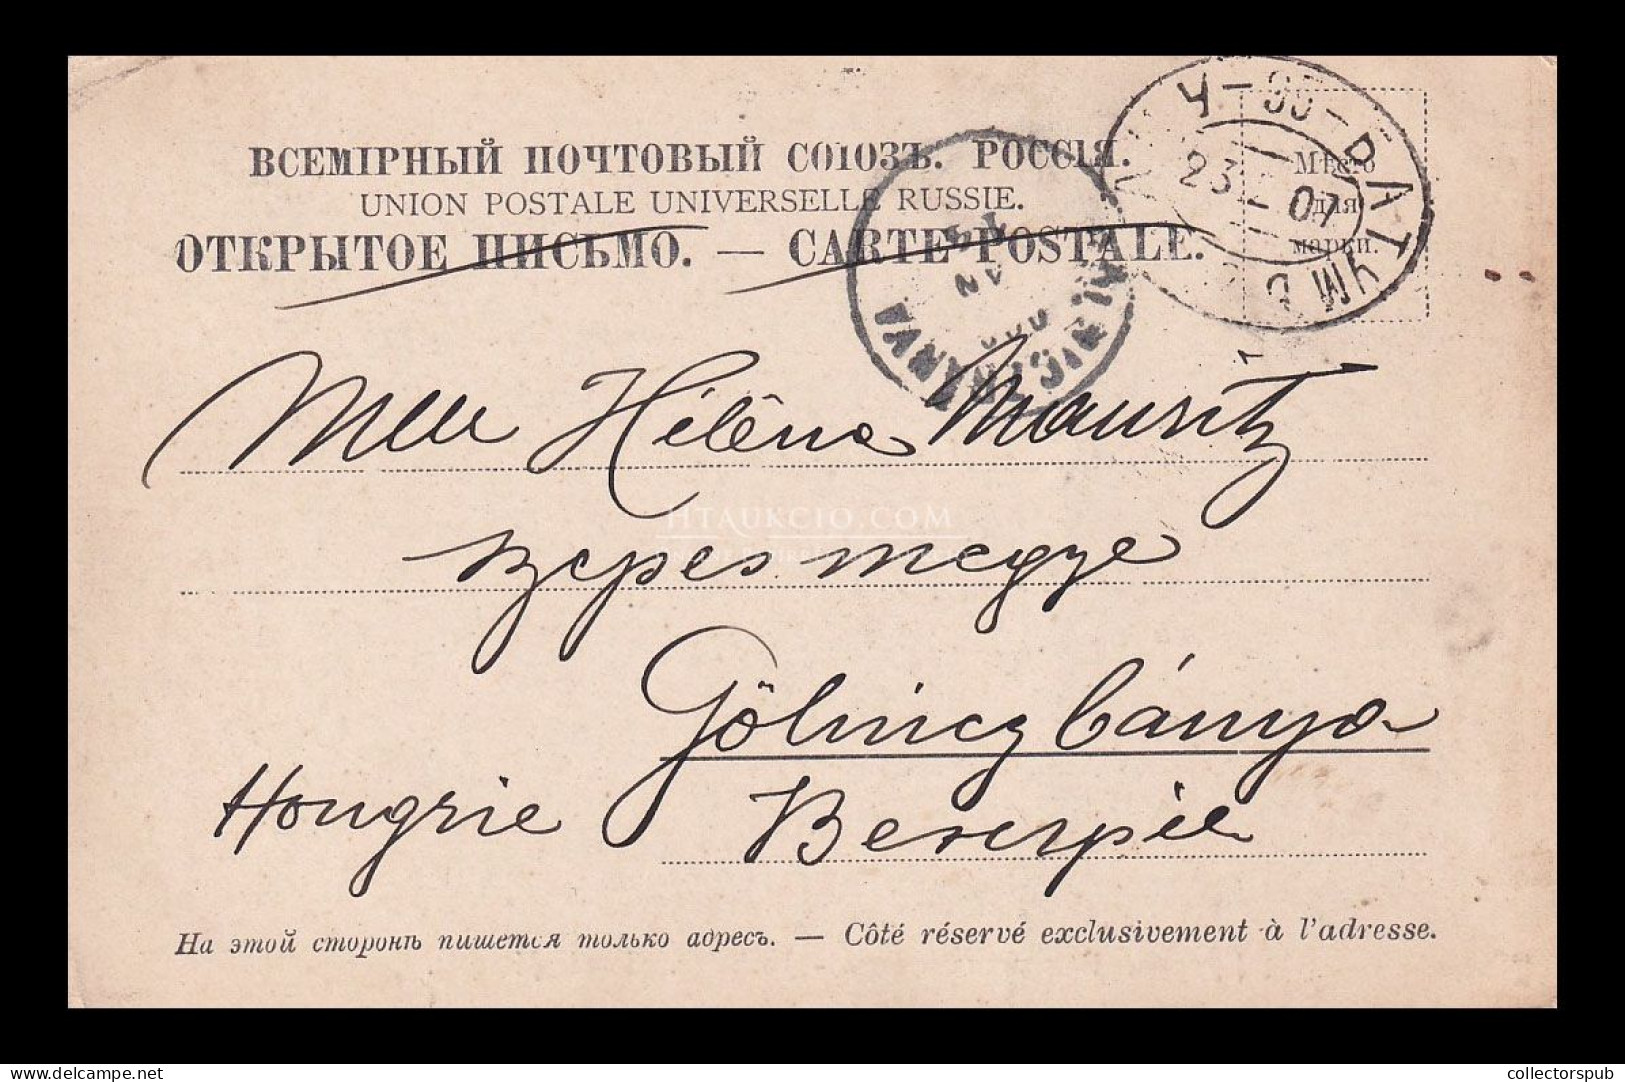 ВСЕМІРНЫЙ ПОЧТОВЫЙ СОЮЗЪ. РОССІЯ.
UNION POSTALE UNIVERSELLE RUSSIE.
ОТКРЫТОЕ ПИСЬМО. — CARTE POSTALE.
Мѣсто
для
марки.
23
07
Mlle Hélène Mauritz
HTAUKCIO.COM
Szepes megye
Gölniczbánya
Hongrie
На этой сторонѣ пишется только адресъ. — Côté réservé exclusivement à l'adresse.
collectorspub